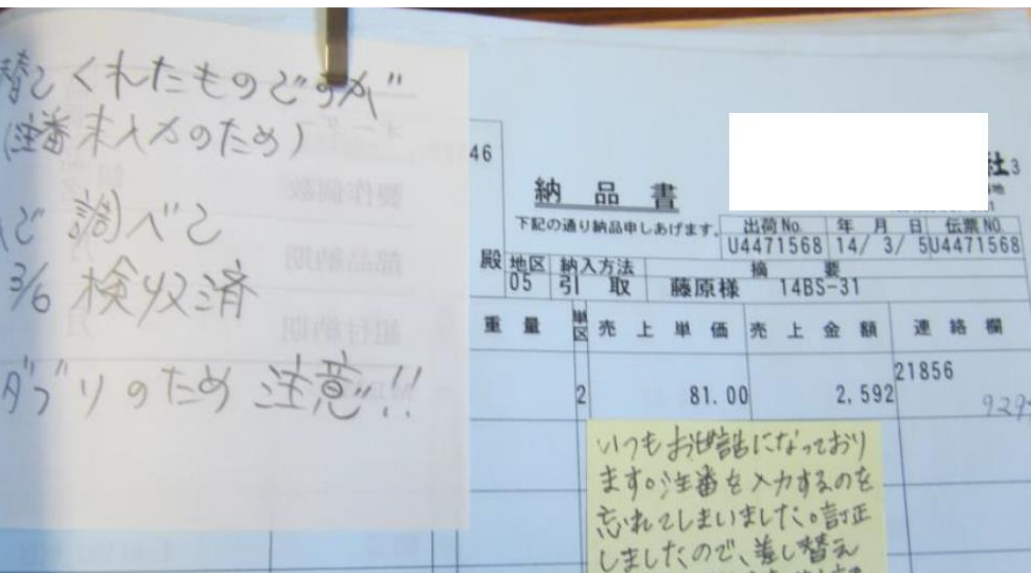 替えてくれたものですが
(注番未入力のため)
で調べて
3/6 検収済
ダブリのため 注意!!
46
納品書
下記の通り納品申しあげます。
社3
出荷No. 年 月 日 伝票NO.
U4471568 14/ 3/ 5 U4471568
殿 地区 納入方法 摘要
05 引取 藤原様 14BS-31
重量 単区 売上単価 売上金額 連絡欄
21856
2 81.00 2,592
929
いつもお世話になっており
ます。注番を入力するのを
忘れてしまいました。訂正
しましたので、差し替え